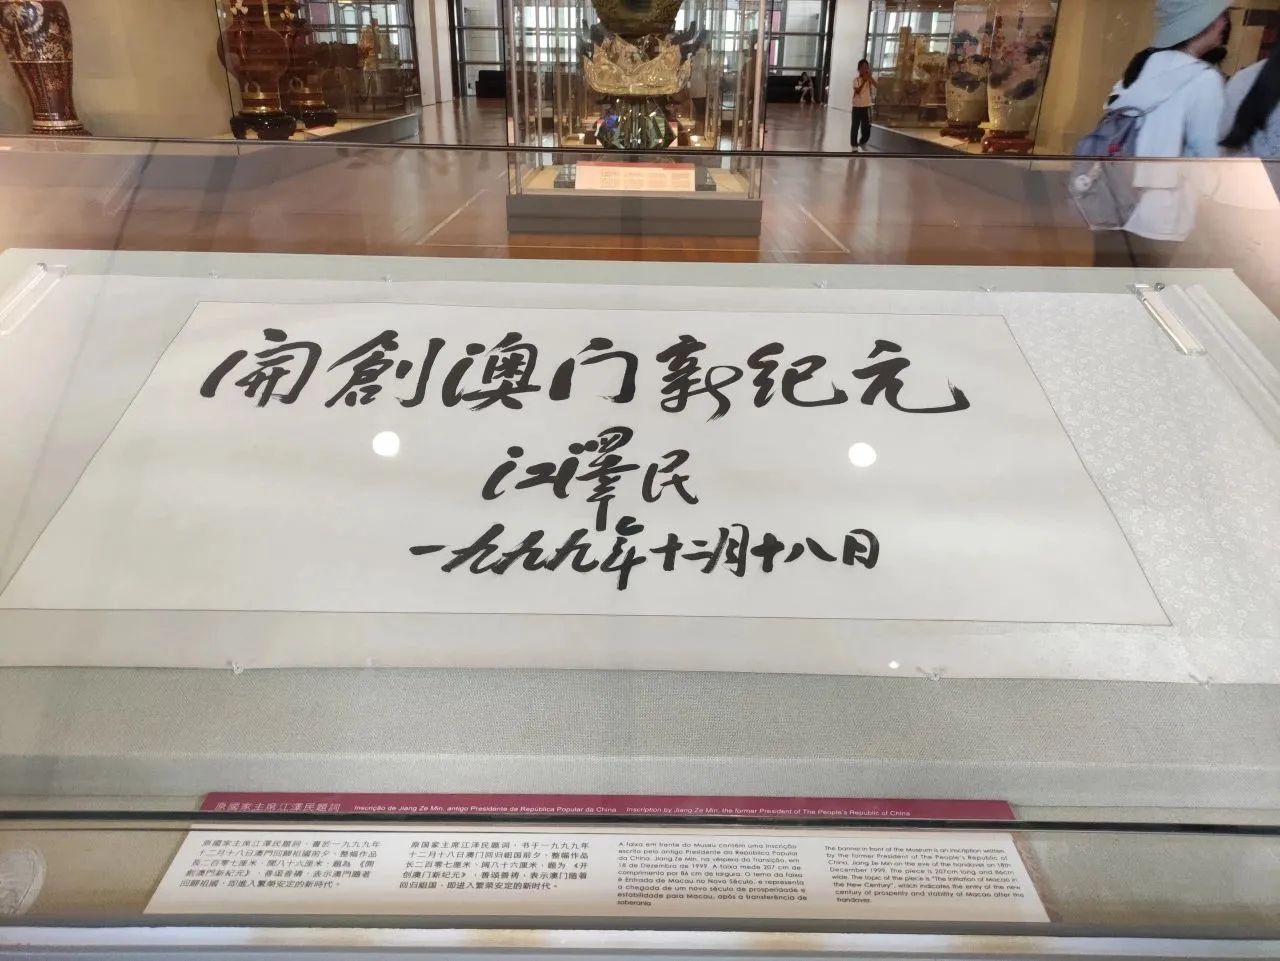 開創澳门新纪元
江澤民
一九九九年十二月十八日
原國家主席江澤民題詞 Inscrição de Jiang Ze Min, antigo Presidente da República Popular da China Inscription by Jiang Ze Min, the former President of The People's Republic of China
原國家主席江澤民題詞，書於一九九九年
十二月十八日澳門回歸祖國前夕，整幅作品
長二百零七厘米，闊八十六厘米，題為《開
創澳門新紀元》，善頌善禱，表示澳門隨著
回歸祖國，即進入繁榮安定的新時代。
原国家主席江泽民题词，书于一九九九年
十二月十八日澳门回归祖国前夕，整幅作品
长二百零七厘米，阔八十六厘米，题为《开
创澳门新纪元》，善颂善祷，表示澳门随着
回归祖国，即进入繁荣安定的新时代。
A faixa em frente do Museu contém uma inscrição
escrito pelo antigo Presidente da República Popular
da China, Jiang Ze Min, na véspera da Transição, em
18 de Dezembro de 1999. A faixa mede 207 cm de
comprimento por 86 cm de largura. O tema da faixa
é Entrada de Macau no Novo Século, e representa
a chegada de um novo século de prosperidade e
estabilidade para Macau, após a transferência de
soberania.
The banner in front of the Museum is an inscription written
by the former President of The People's Republic of
China, Jiang Ze Min on the eve of the handover on 18th
December 1999. The piece is 207cm long and 86cm
wide. The topic of the piece is "The Initiation of Macao in
the New Century", which indicates the entry of the new
century of prosperity and stability of Macao after the
handover.